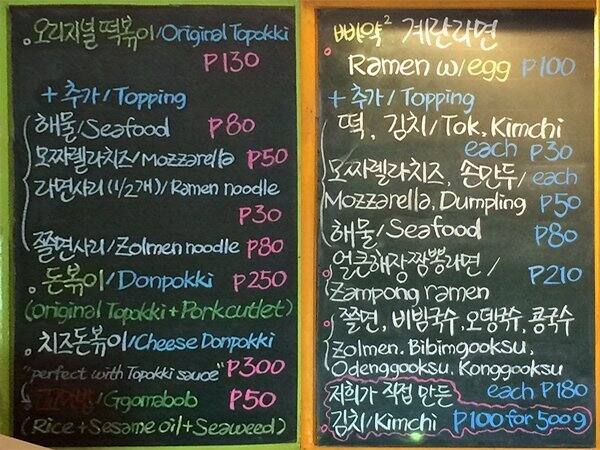 오리지널 떡볶이/Original Topokki
₱130
+추가/Topping
해물/Seafood ₱80
모짜렐라치즈/Mozzarella ₱50
라면사리(1/2개)/Ramen noodle
₱30
쫄면사리/Zolmen noodle ₱80
돈볶이/Donpokki ₱250
(Original Topokki+Porkcutlet)
치즈돈볶이/Cheese Donpokki
"perfect with Topokki sauce" ₱300
/Ggomabob ₱50
(Rice+Sesame oil+Seaweed)
삐약² 계란라면
Ramen w/egg ₱100
+추가/Topping
떡, 김치/Tok, Kimchi
each ₱30
모짜렐라치즈, 손만두/each
Mozzarella, Dumpling ₱50
해물/Seafood ₱80
얼큰해장짬뽕라면/
Zampong ramen ₱210
쫄면, 비빔국수, 오뎅국수, 콩국수
Zolmen. Bibimgooksu,
Odenggooksu, Konggooksu
each ₱180
저희가 직접 만든
김치/Kimchi ₱100 for 500g